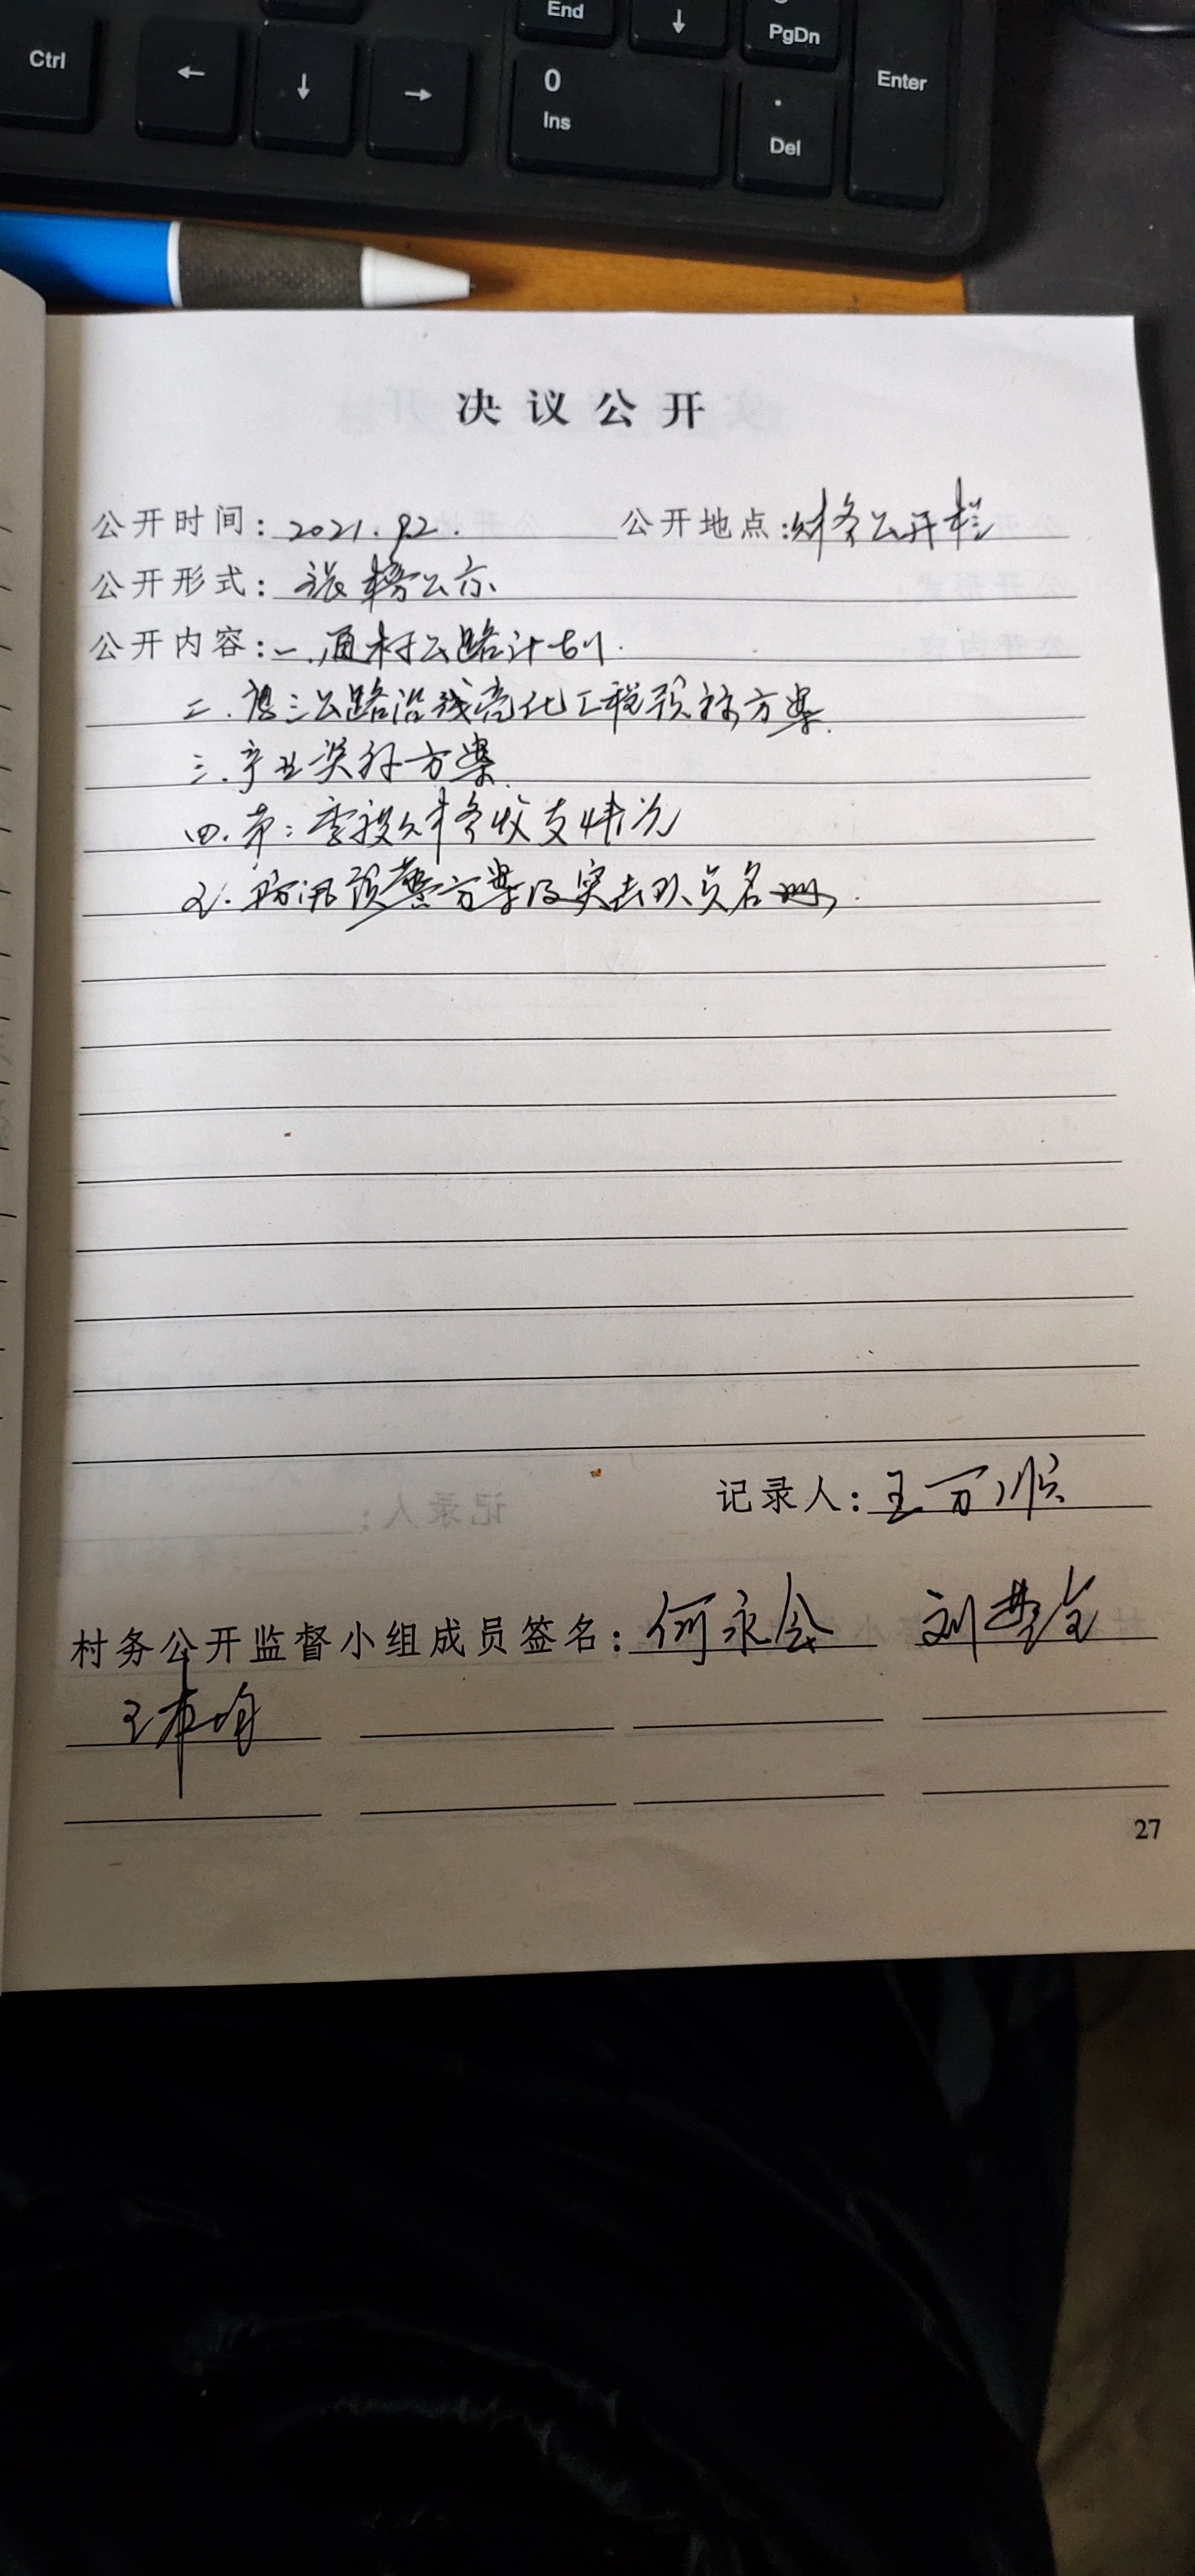 End
PgDn
Ctrl
0
Ins
Del
Enter
决议公开
公开时间: 2021.9.2. 公开地点: 财务公开栏
公开形式: 张榜公示
公开内容: 一.通村公路计划.
二. 三公路沿线亮化工程预算方案.
三.产业奖补方案.
四.第二季度财务收支情况
五.防汛预警方案及突击队员名册.
记录人: 王万顺
村务公开监督小组成员签名: 何永会 刘
王
27